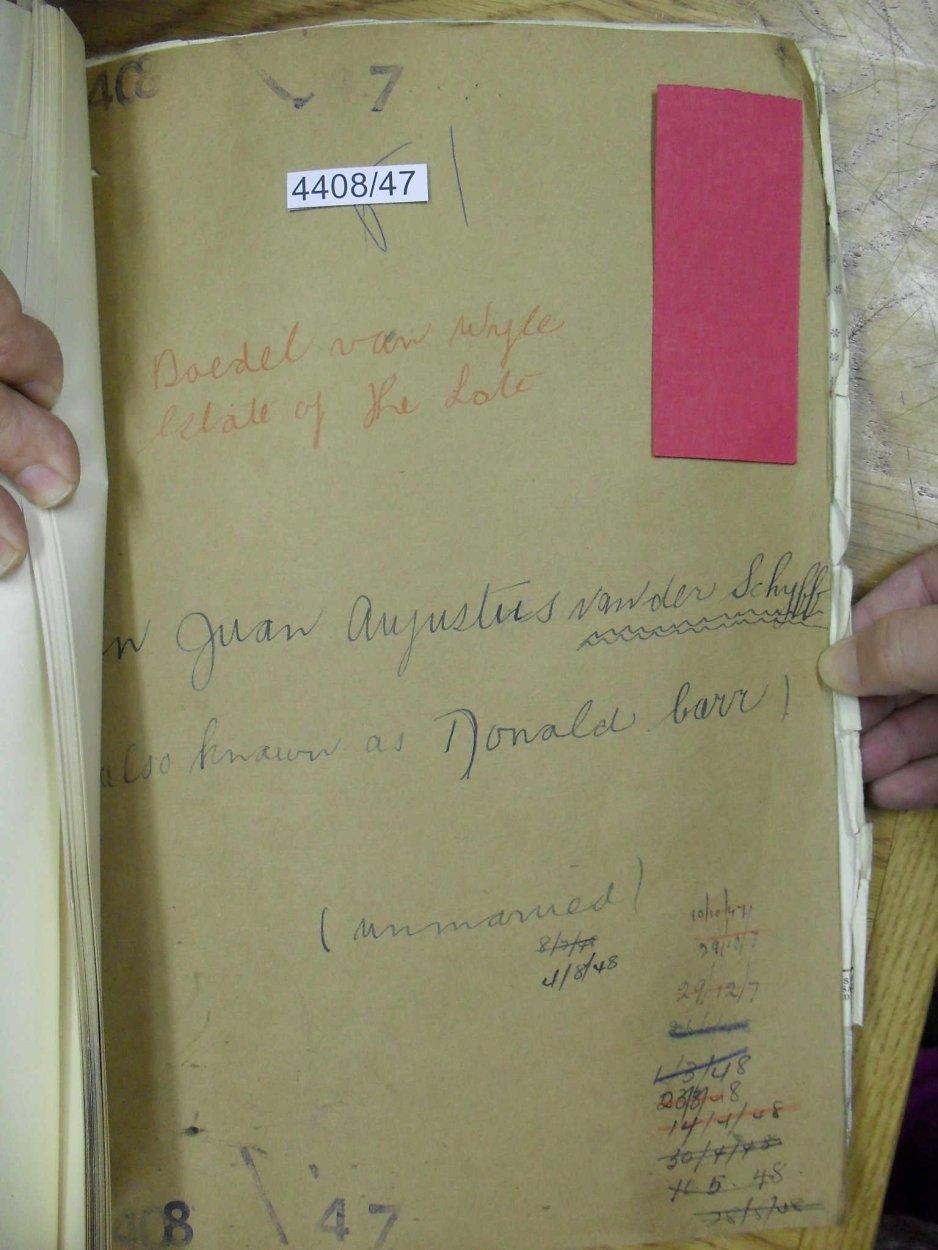 408 47
4408/47
Boedel van Wyle
Estate of the Late
n Juan Augustus van der Schyff
also known as Donald barr)
(unmarried)
10/10/47
29/10/7
8/7/48
4/8/48
29/12/7
1/3/48
23/3/48
14/4/48
30/4/48
11.5.48
28/5/48
408 47